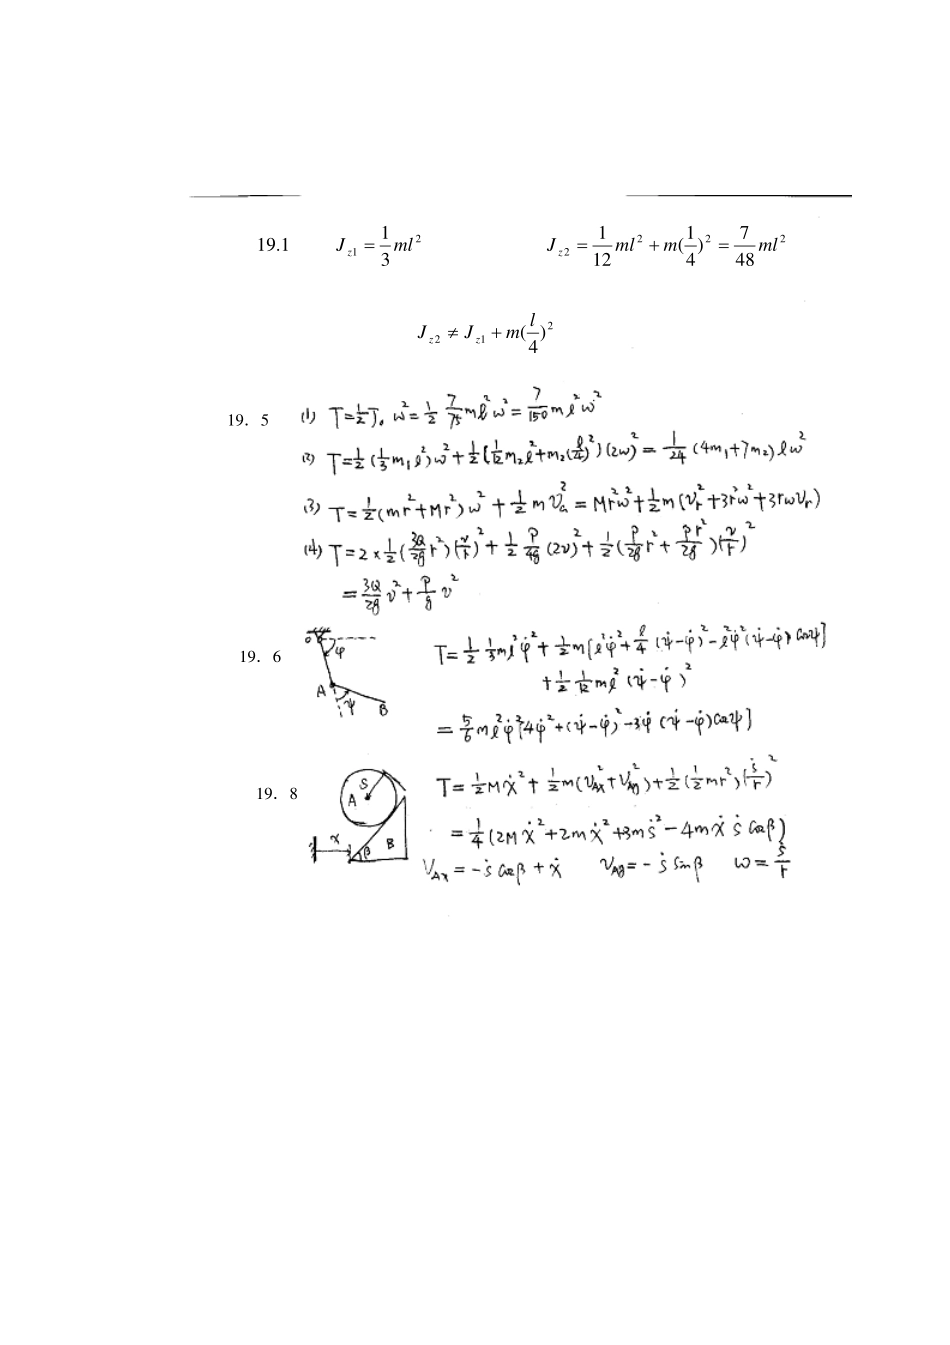 19.1 J_{z1} = \frac{1}{3} ml^2 J_{z2} = \frac{1}{12} ml^2 + m(\frac{1}{4})^2 = \frac{7}{48} ml^2
J_{z2} ≠ J_{z1} + m(\frac{l}{4})^2
19．5 (1) T=\frac{1}{2}J_0 ω^2=\frac{1}{2} \frac{7}{75}ml^2ω^2=\frac{7}{150}ml^2ω^2
(2) T=\frac{1}{2}(\frac{1}{3}m_1l^2)ω^2+\frac{1}{2}[\frac{1}{12}m_2l^2+m_2(\frac{l}{4})^2](2ω)^2=\frac{1}{24}(4m_1+7m_2)lω^2
(3) T=\frac{1}{2}(mr^2+Mr^2)ω^2+\frac{1}{2}mv_a^2=Mr^2ω^2+\frac{1}{2}m(v_r^2+3r^2ω^2+3rωv_r)
(4) T=2×\frac{1}{2}(\frac{3Q}{2g}r^2)(\frac{v}{r})^2+\frac{1}{2}\frac{P}{4g}(2v)^2+\frac{1}{2}(\frac{P}{2g}r^2+\frac{Pr^2}{2g})(\frac{v}{r})^2
=\frac{3Q}{2g}v^2+\frac{P}{g}v^2
19．6 O φ A ψ B T=\frac{1}{2}\frac{1}{3}ml^2\dot{φ}^2+\frac{1}{2}m[l^2\dot{φ}^2+\frac{l}{4}(\dot{ψ}-\dot{φ})^2-l^2\dot{φ}^2(\dot{ψ}-\dot{φ})cosψ]
+\frac{1}{2}\frac{1}{12}ml^2(\dot{ψ}-\dot{φ})^2
=\frac{5}{6}ml^2\dot{φ}^2[4\dot{φ}^2+(\dot{ψ}-\dot{φ})^2-3\dot{φ}(\dot{ψ}-\dot{φ})cosψ]
19．8 S A x β B T=\frac{1}{2}M\dot{x}^2+\frac{1}{2}m(v_{Ax}^2+v_{Ay}^2)+\frac{1}{2}(\frac{1}{2}mr^2)(\frac{\dot{s}}{r})^2
=\frac{1}{4}(2M\dot{x}^2+2m\dot{x}^2+3m\dot{s}^2-4m\dot{x}\dot{s}cosβ)
v_{Ax}=-\dot{s}cosβ+\dot{x} v_{Ay}=-\dot{s}sinβ ω=\frac{\dot{s}}{r}